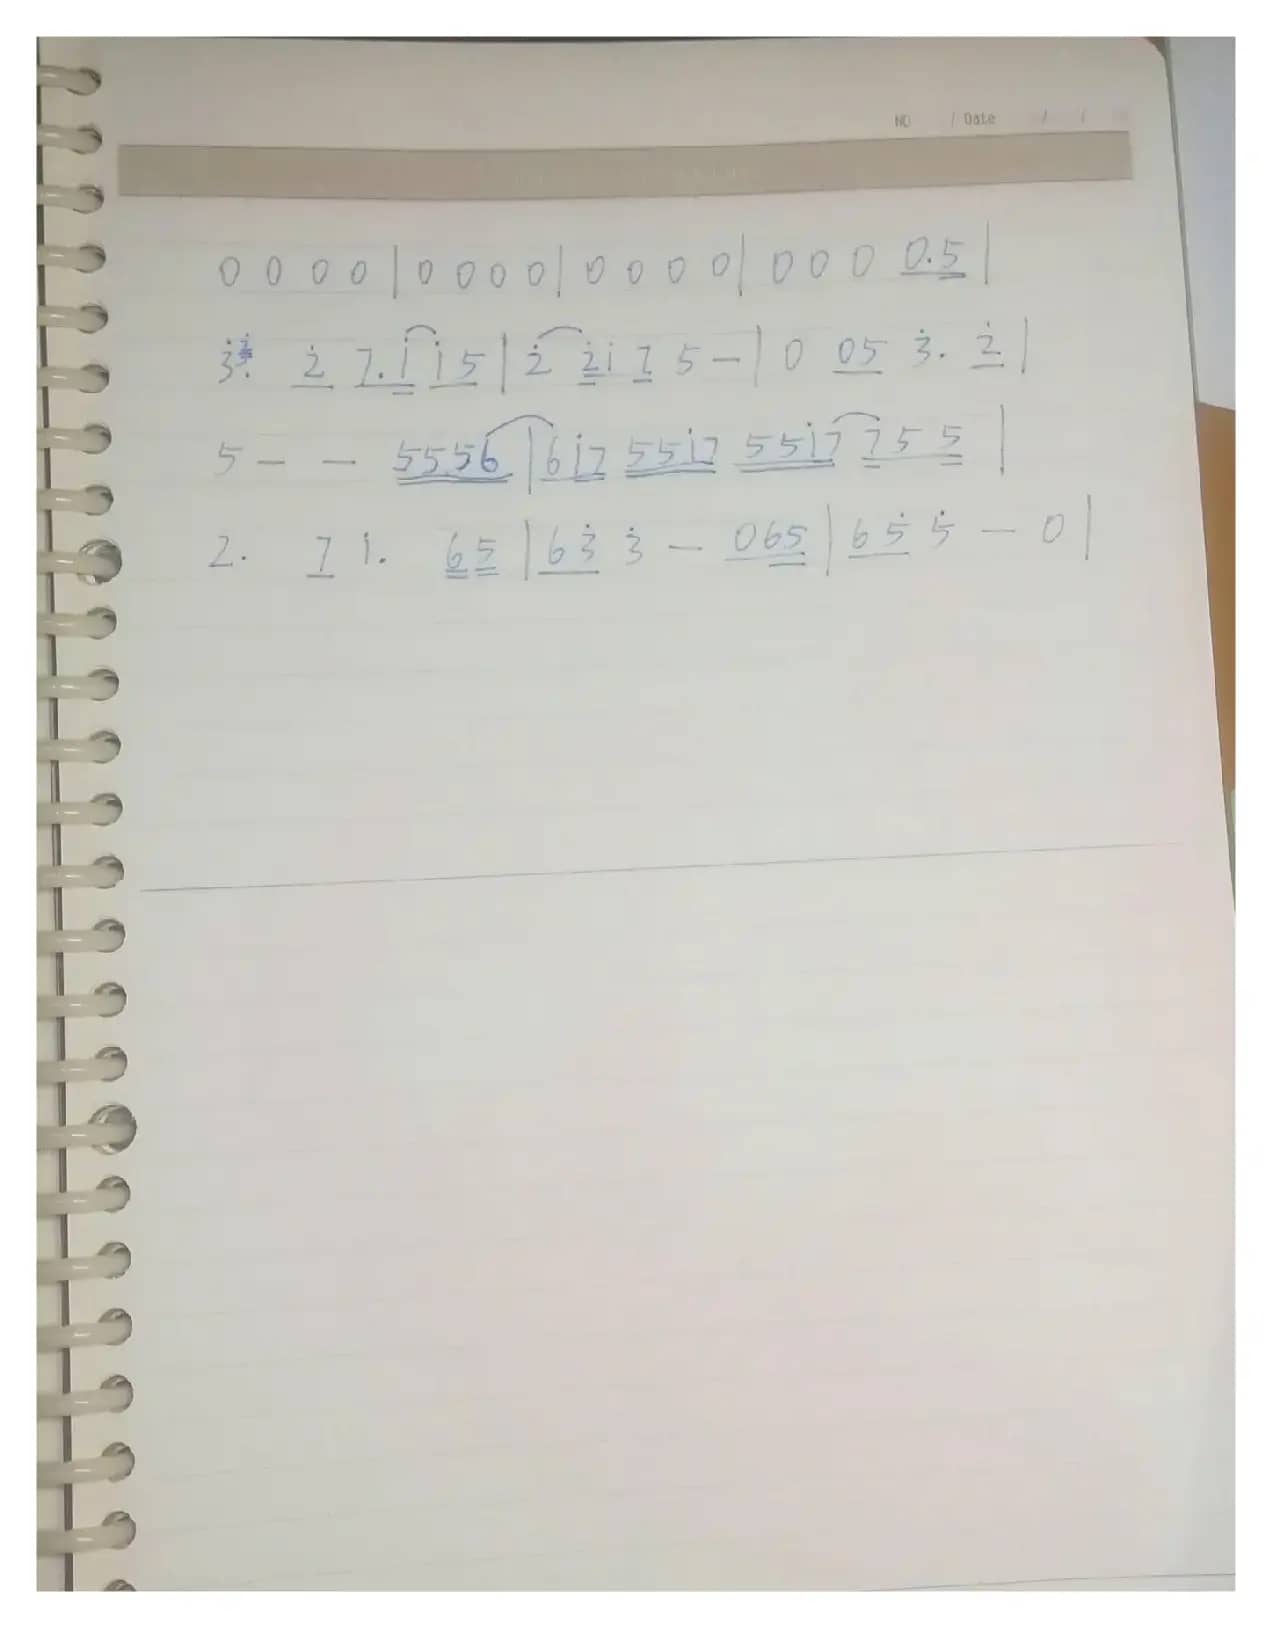 NO / Date / /
0 0 0 0 | 0 0 0 0 | 0 0 0 0 | 0 0 0 0.5 |
3̇. 2̇ 7.1̇ 1̇5 | 2̇ 2̇1̇ 7 5 – | 0 05 3̇. 2̇ |
5 – – 5556 | 61̇7 551̇7 551̇7 7 5 5 |
2. 7 1. 65 | 63̇ 3̇ – 065 | 65̇ 5̇ – 0 |